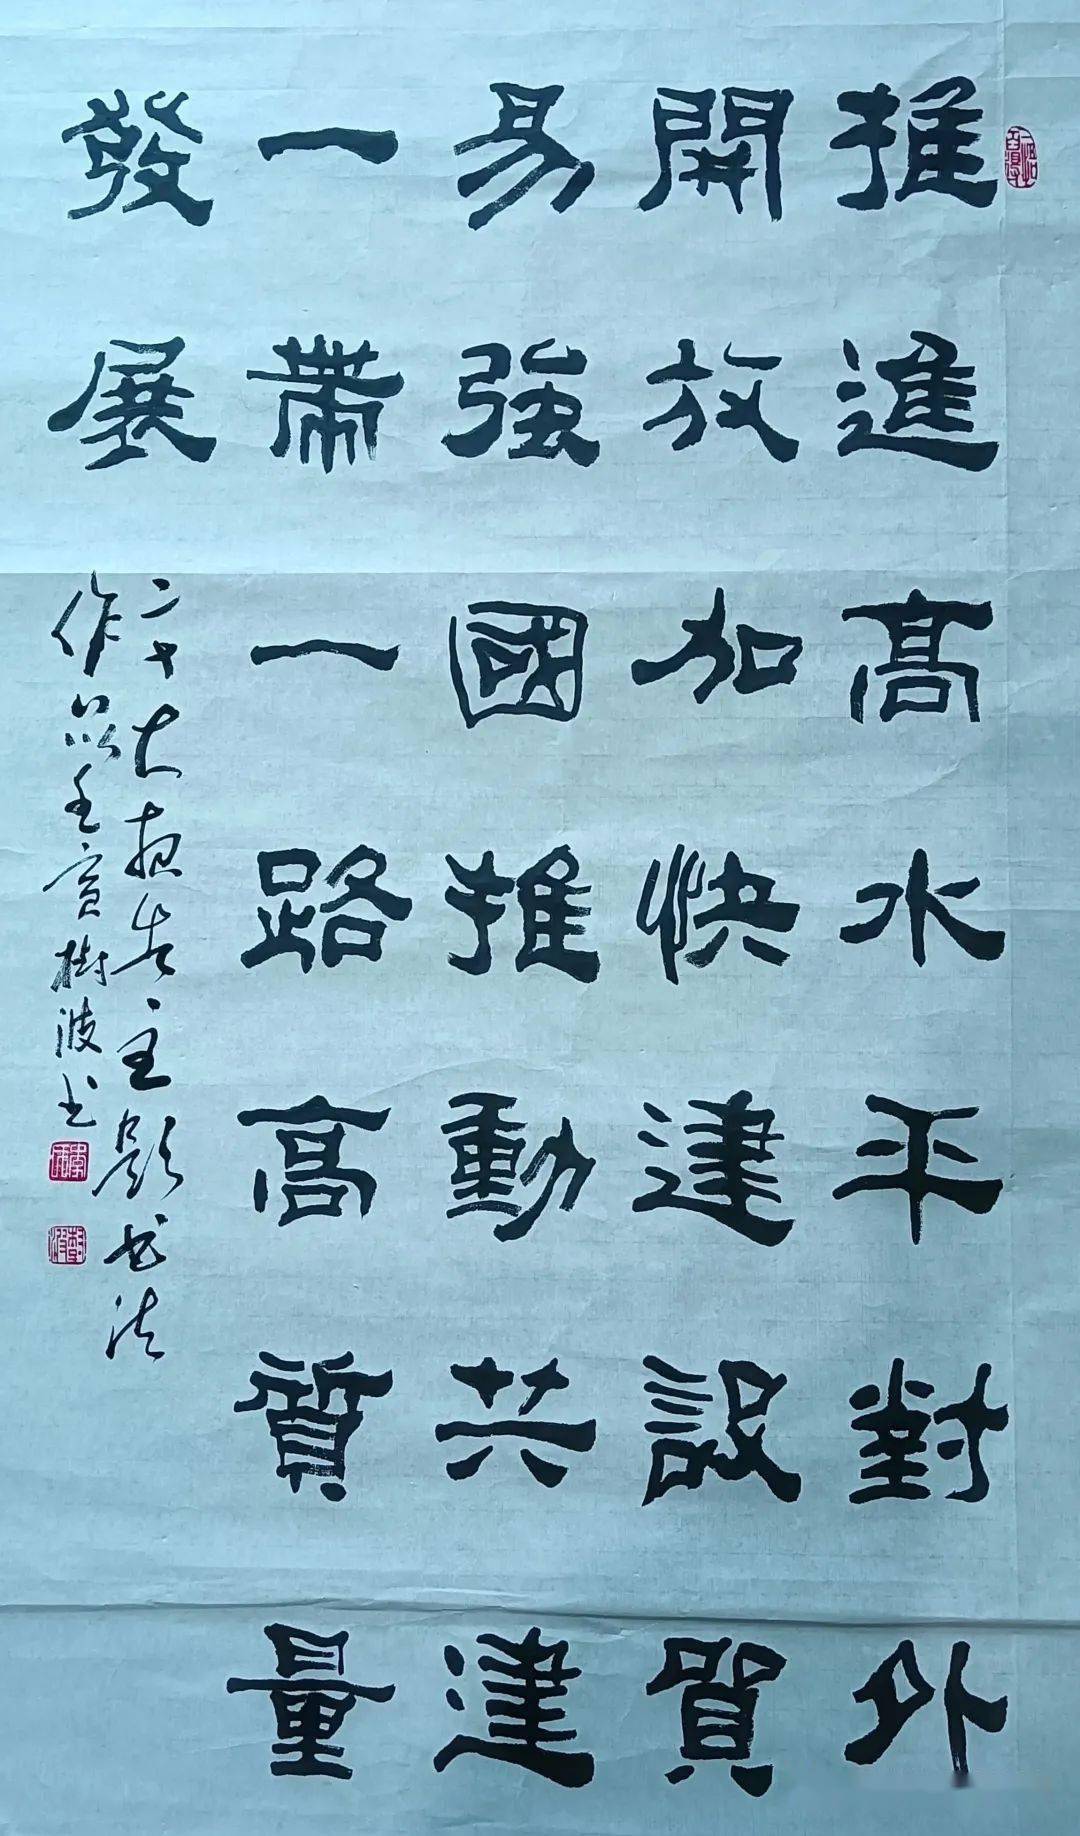 推進高水平對外
開放加快建設貿
易強國推動共建
一帶一路高質量
發展
二十大報告主題書法
作品 樹波書